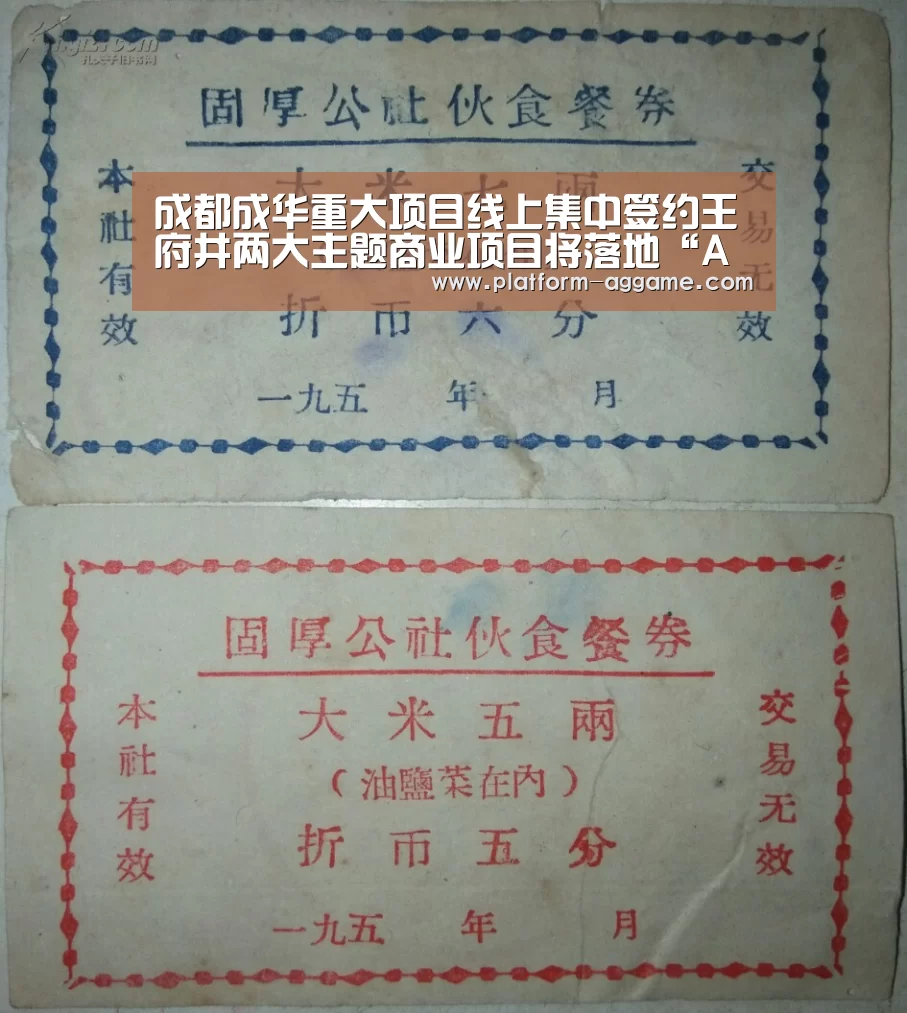 固厚公社伙食餐券
本社有效
交易无效
大米七兩
成都成华重大项目线上集中签约王
府井两大主题商业项目将落地“A
www.platform-aggame.com
折币六分
一九五 年 月
固厚公社伙食餐券
本社有效
交易无效
大米五兩
（油鹽菜在內）
折币五分
一九五 年 月